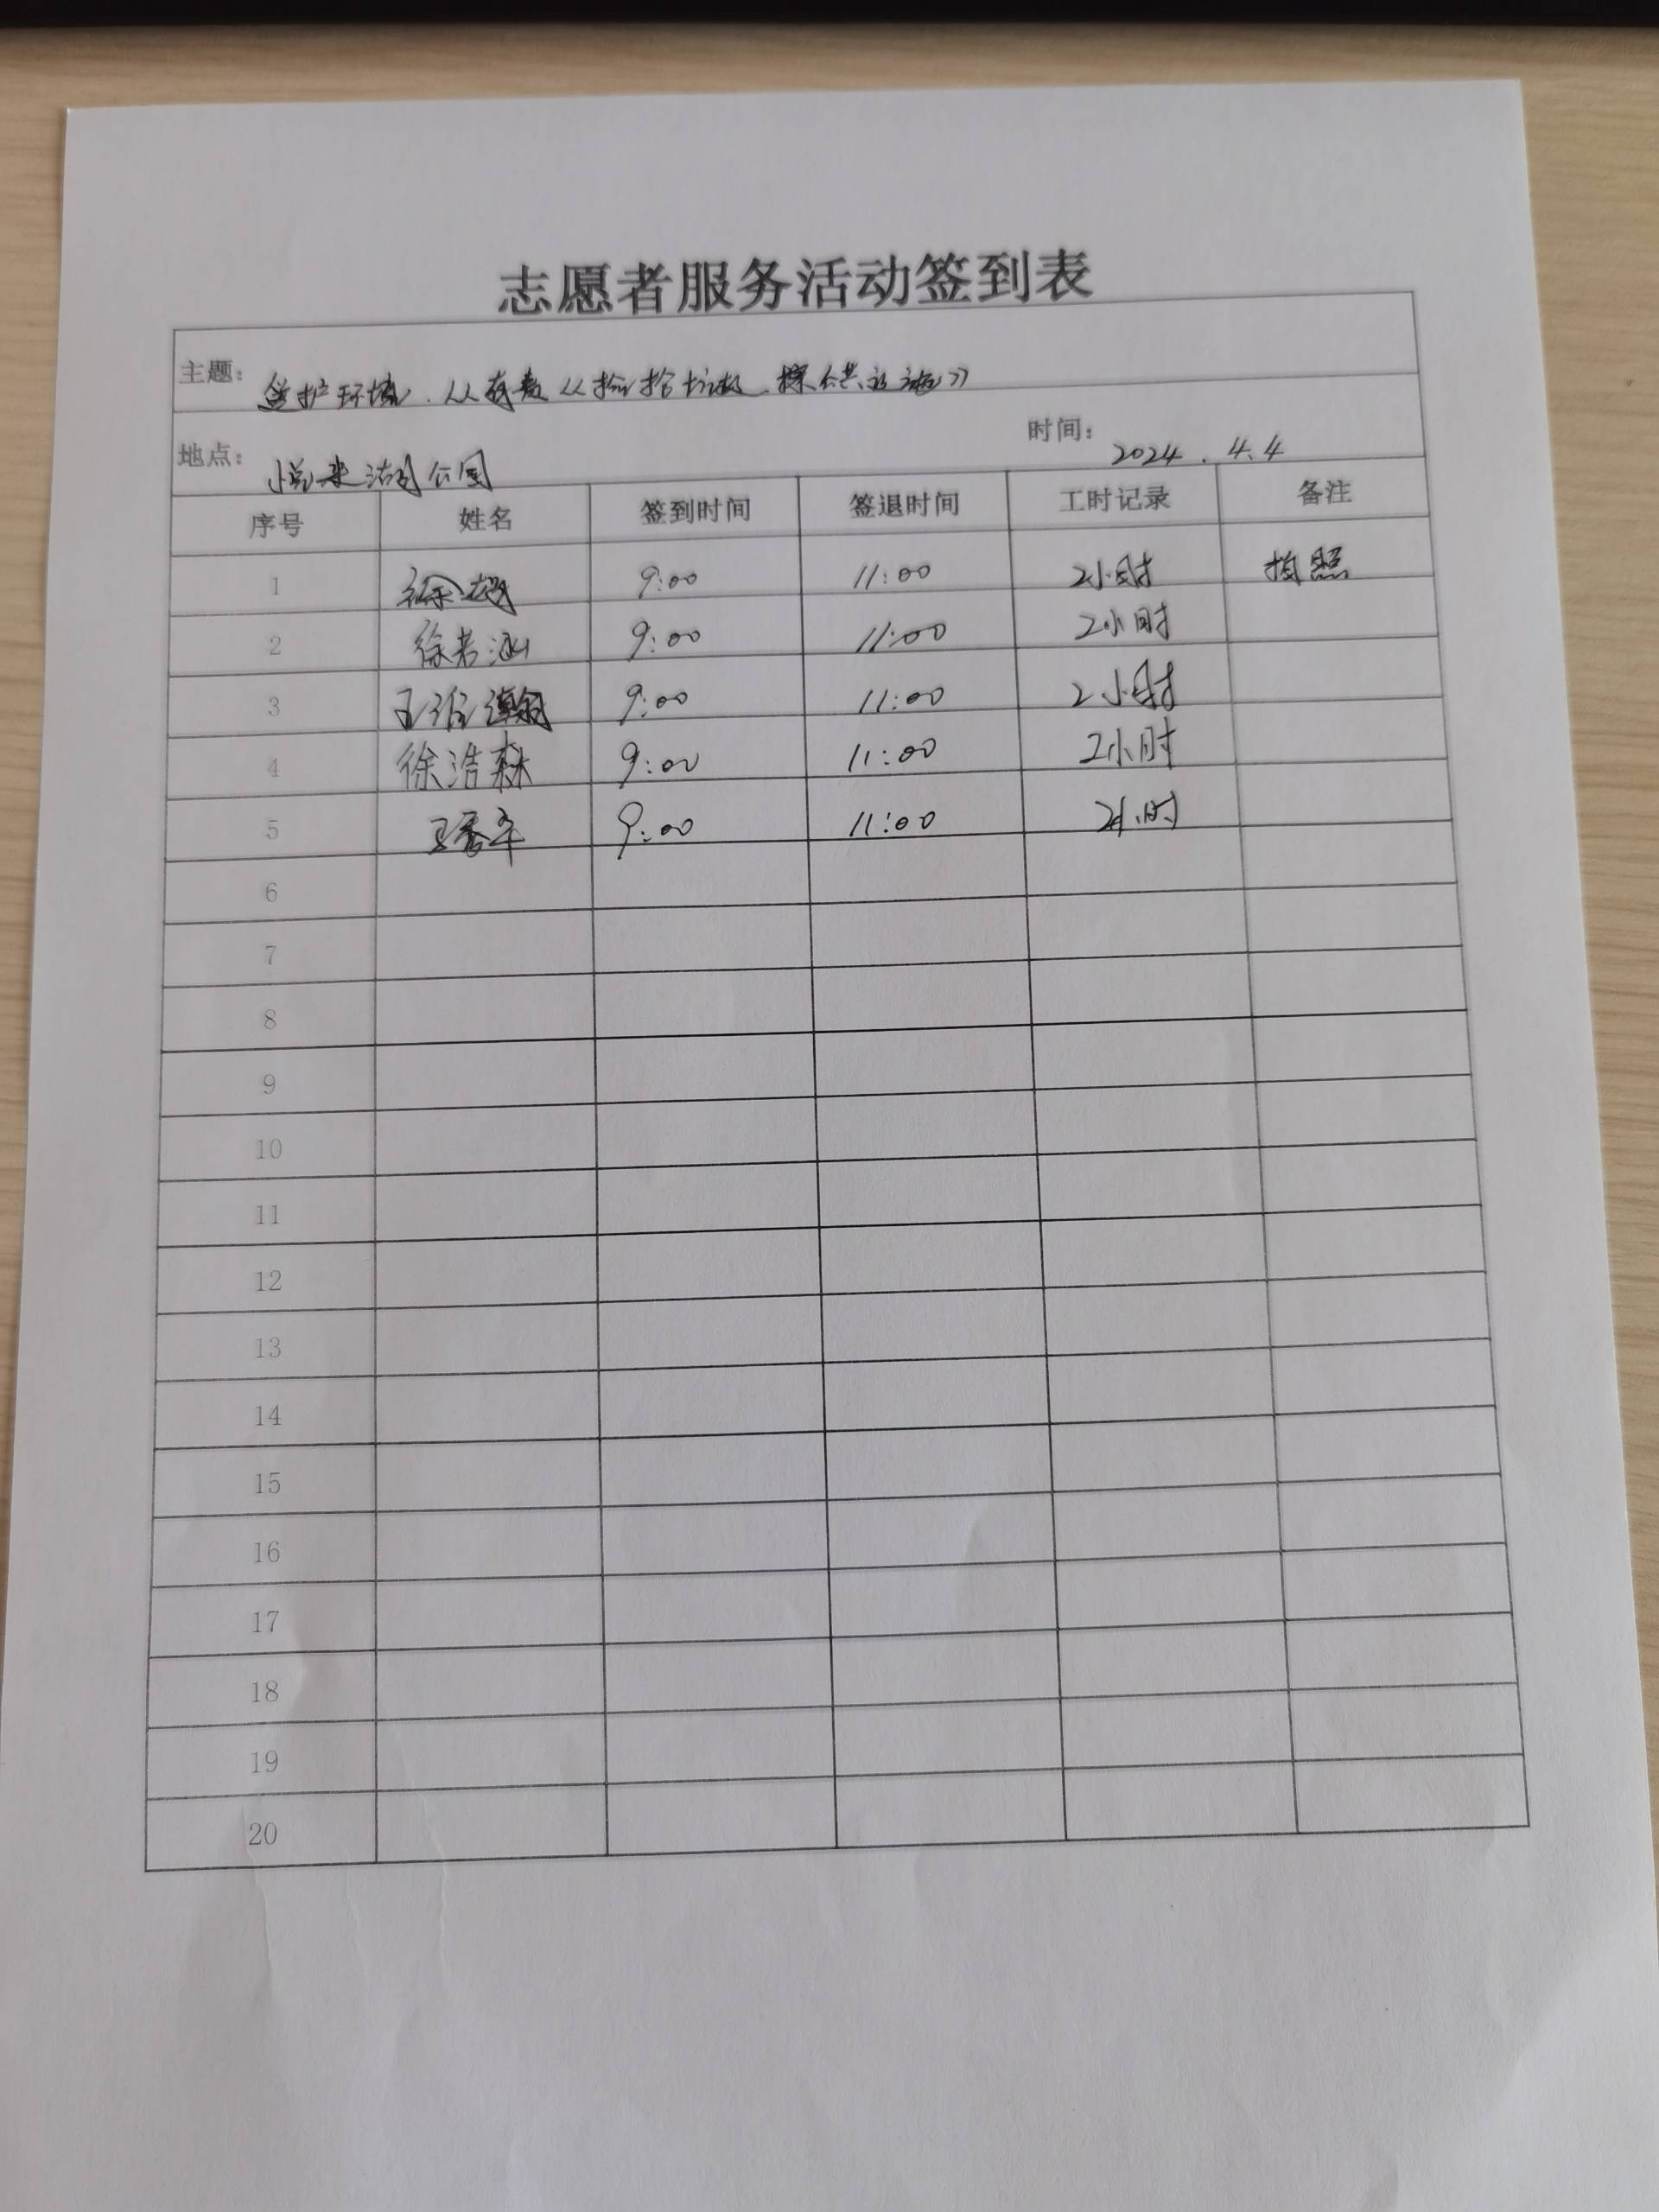 志愿者服务活动签到表
主题: 护环境. 人人有责《捡捡垃圾 擦公共设施》
地点: 悦来湖公园 时间: 2024.4.4
序号 姓名 签到时间 签退时间 工时记录 备注
1 徐 9:00 11:00 2小时 拍照
2 徐若涵 9:00 11:00 2小时
3 王 瀚 9:00 11:00 2小时
4 徐浩森 9:00 11:00 2小时
5 王秀华 9:00 11:00 2小时
6
7
8
9
10
11
12
13
14
15
16
17
18
19
20